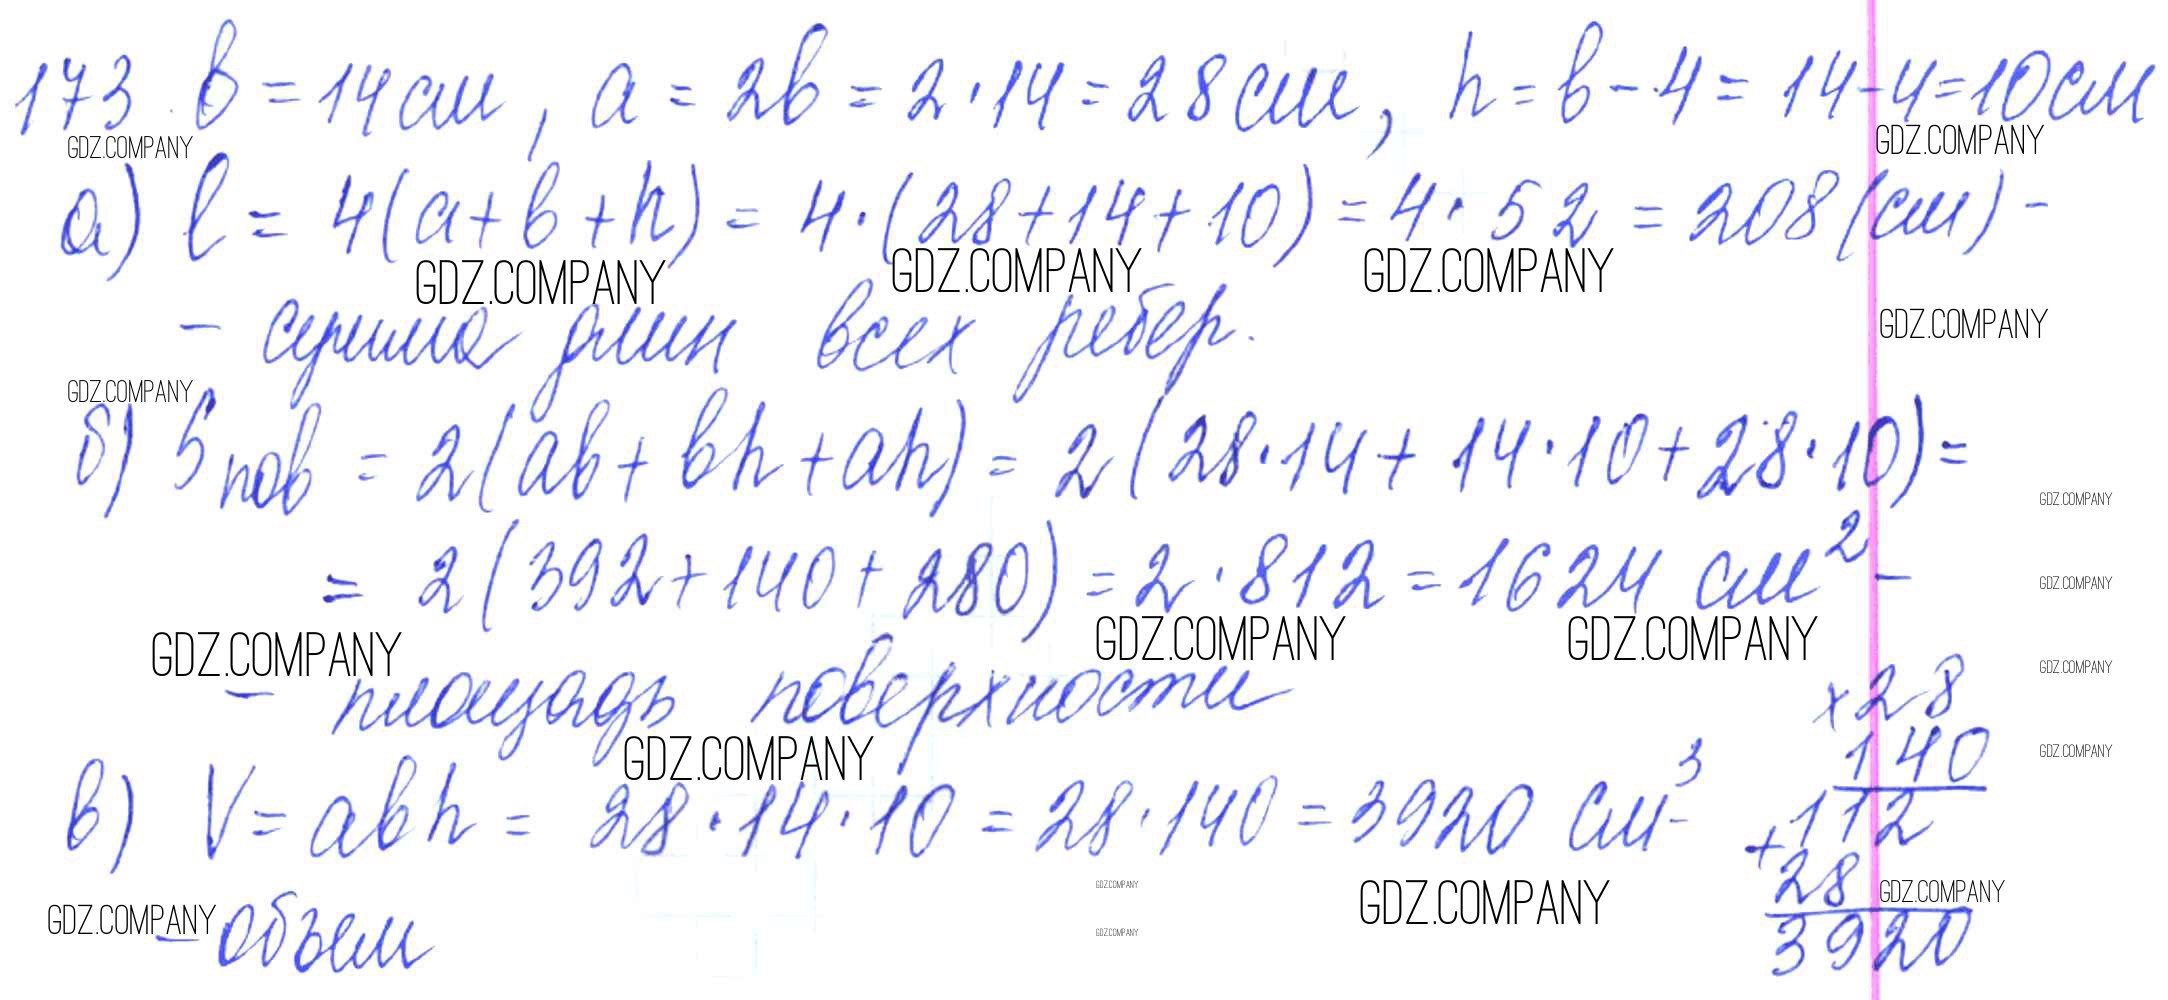 173. b = 14 см, a = 2b = 2·14 = 28 см, h = b - 4 = 14 - 4 = 10 см
GDZ.COMPANY GDZ.COMPANY
а) l = 4(a+b+h) = 4·(28+14+10) = 4·52 = 208 (см) -
GDZ.COMPANY GDZ.COMPANY GDZ.COMPANY
- сумма длин всех ребер. GDZ.COMPANY
GDZ.COMPANY
б) Sпов = 2(ab+bh+ah) = 2(28·14+14·10+28·10) =
GDZ.COMPANY
= 2(392+140+280) = 2·812 = 1624 см² -
GDZ.COMPANY
GDZ.COMPANY GDZ.COMPANY GDZ.COMPANY
- площадь поверхности
GDZ.COMPANY
GDZ.COMPANY GDZ.COMPANY
в) V = abh = 28·14·10 = 28·140 = 3920 см³ -
GDZ.COMPANY GDZ.COMPANY GDZ.COMPANY
GDZ.COMPANY - объем
GDZ.COMPANY
×28
140
+112
28
3920